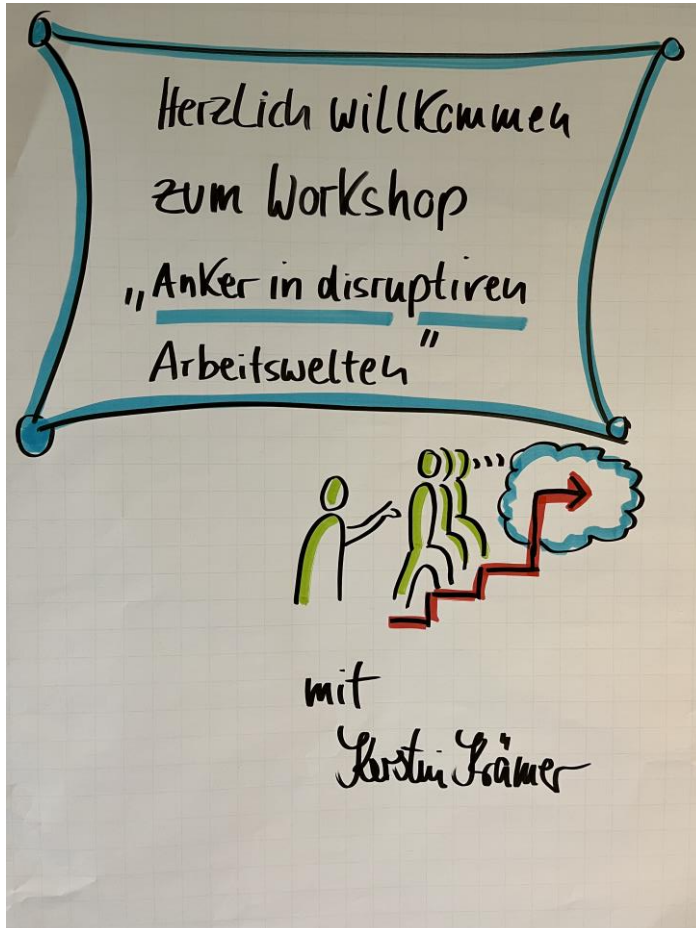 Herzlich willkommen
zum Workshop
„Anker in disruptiven
Arbeitswelten"
mit
Kerstin Krämer